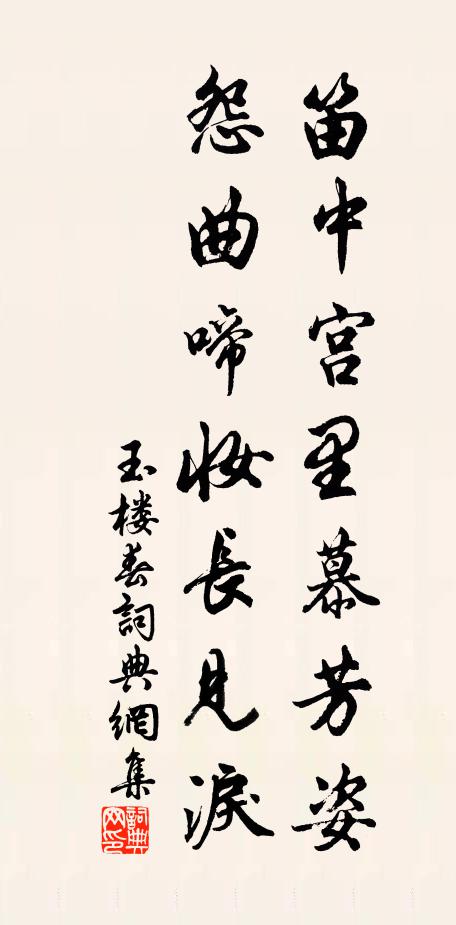 笛中宫里慕芳姿
怨曲啼妝長見淚
玉楼春詞典網集
詞典网印